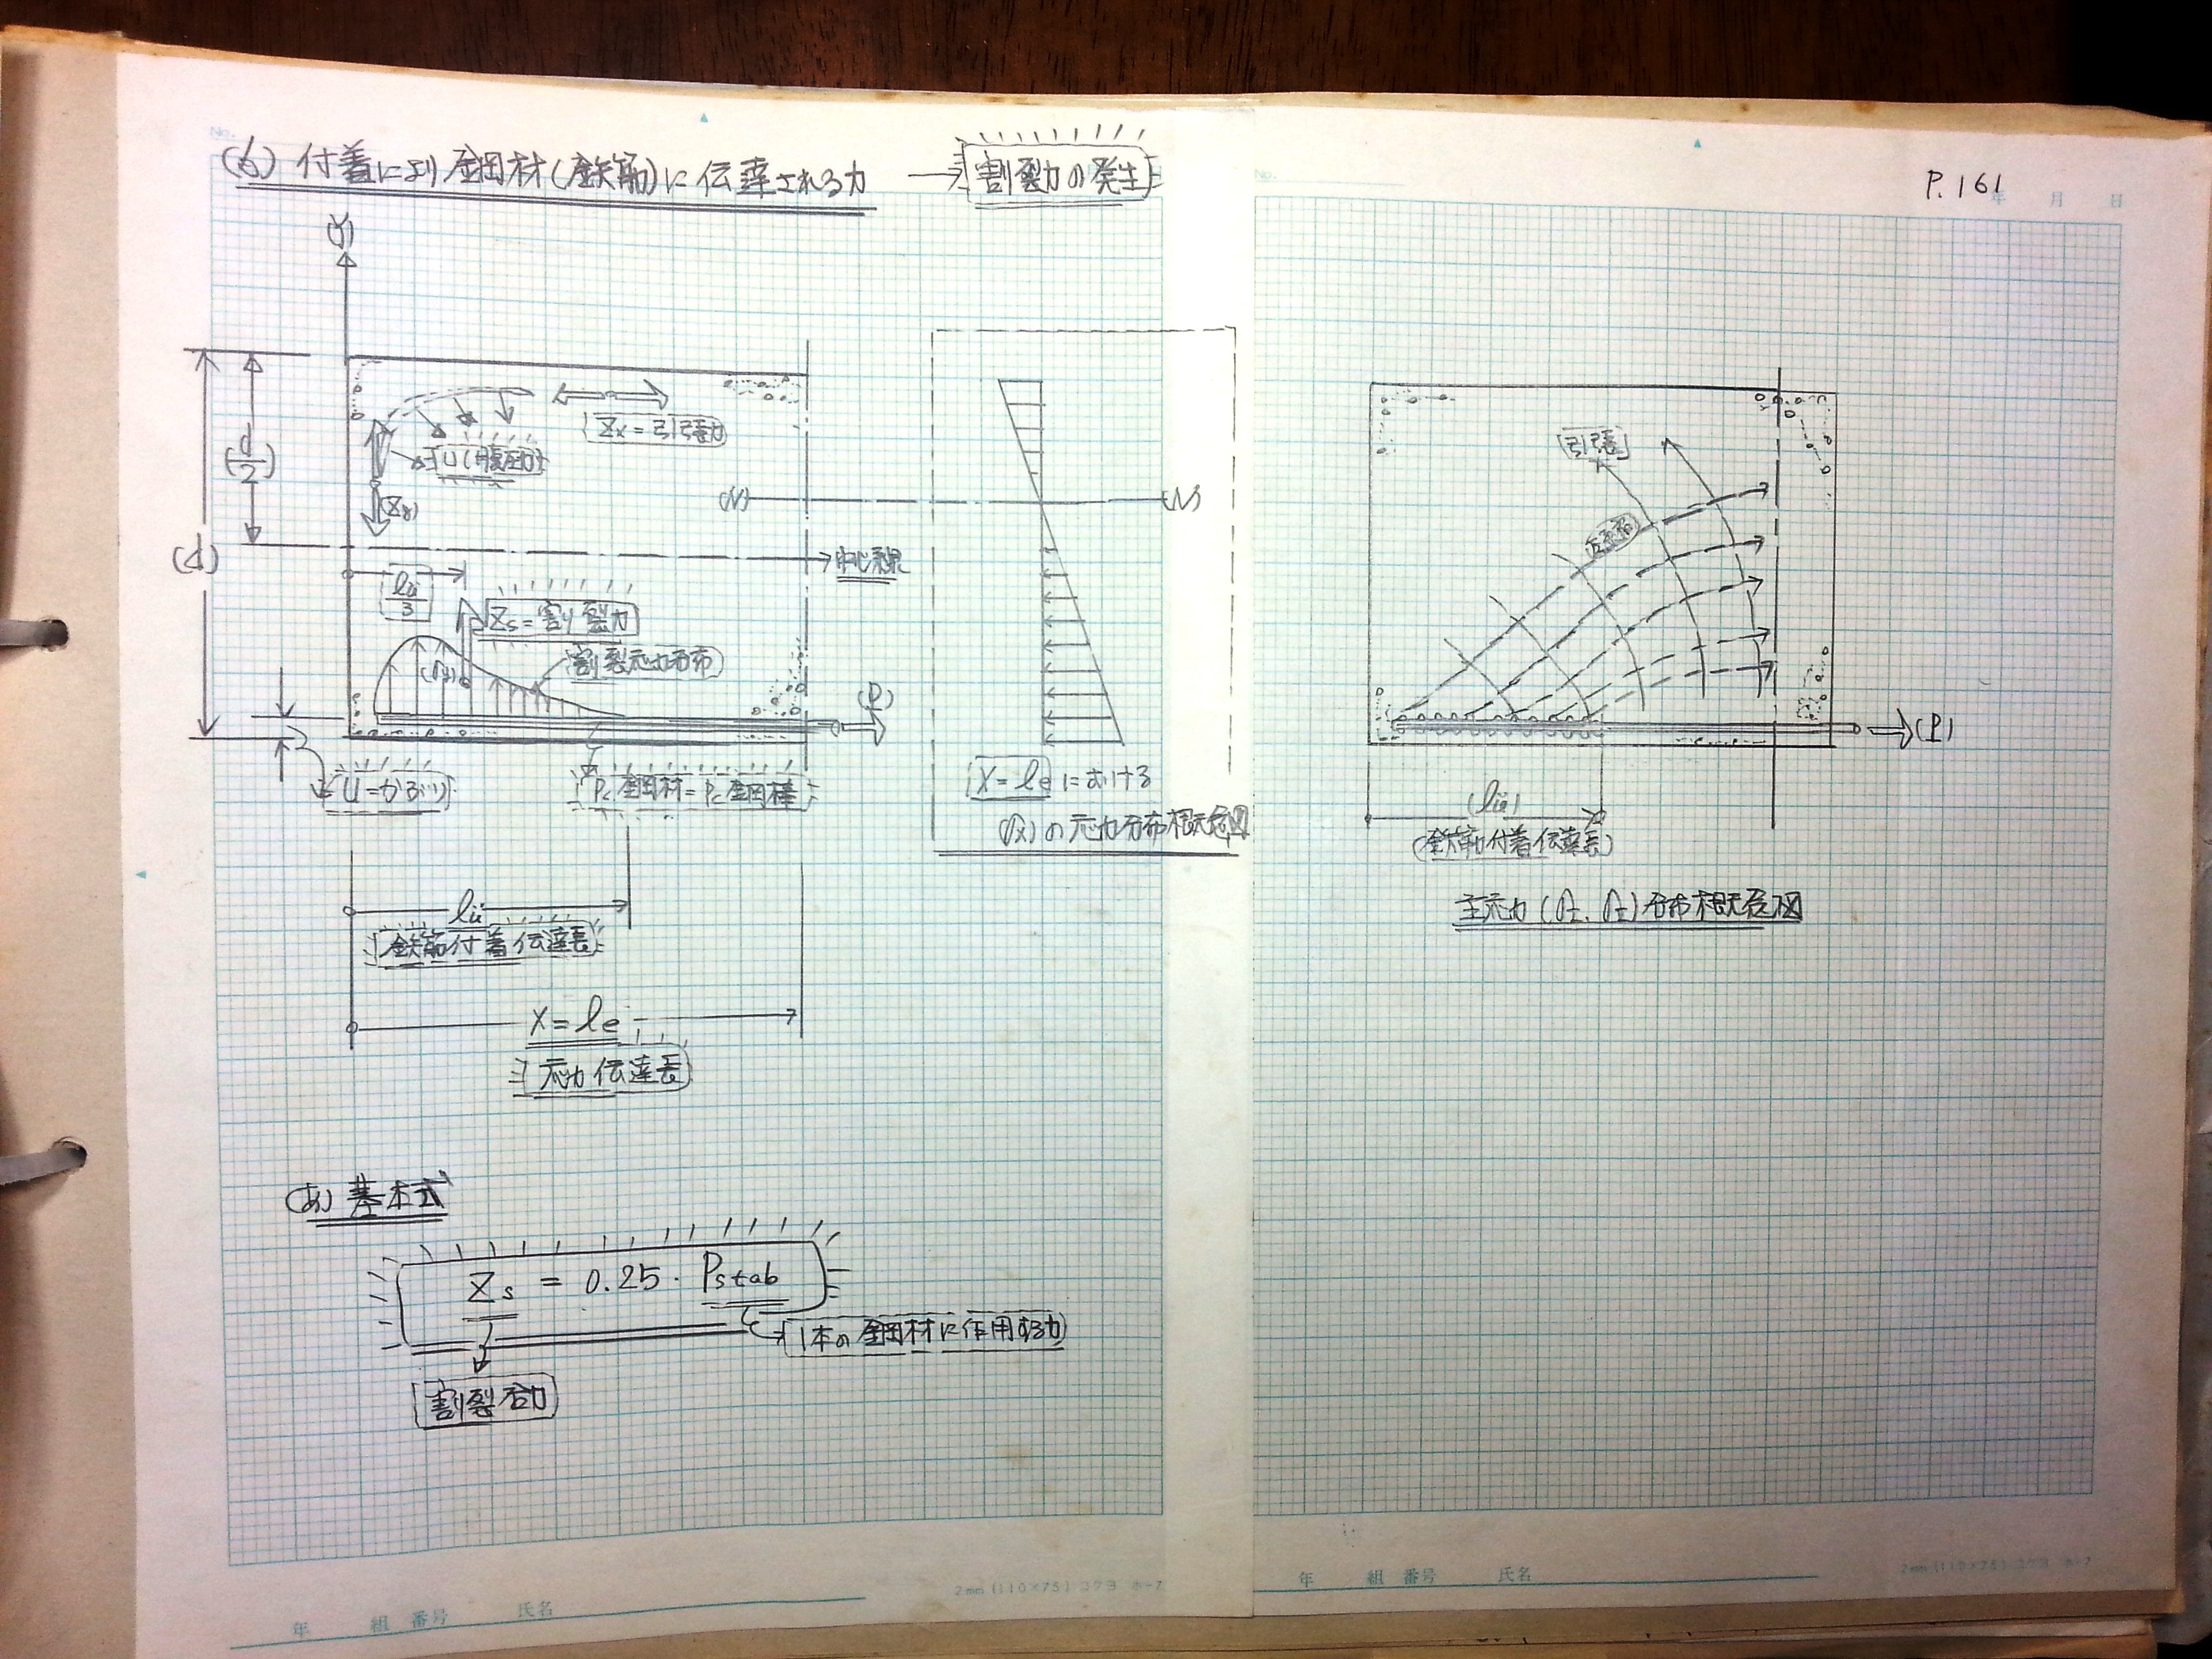 No.
(6) 付着により鋼材(鉄筋)に伝達される力 → 割裂力の発生
(y)
(d)
(d/2)
Zx=引張力
U(腹圧力)
(Zy)
(N) (N)
中心線
lü/3
Zs=割り裂力
割裂応力分布
(σy)
(P)
ü=かぶり
Pc鋼材=Pc鋼棒
X=leにおける
(σx)の応力分布概念図
lü
鉄筋付着伝達長
X=le
応力伝達長
(a) 基本式
Zs = 0.25・Pstab
1本の鋼材に作用する力
割裂合力
年 組 番号 氏名
2mm(110×75) コクヨ ホ-7
No.
P.161
年 月 日
引張
圧縮
(P)
(lü)
(鉄筋付着伝達長)
主応力(σI、σII)分布概念図
年 組 番号 氏名
2mm(110×75) コクヨ ホ-7